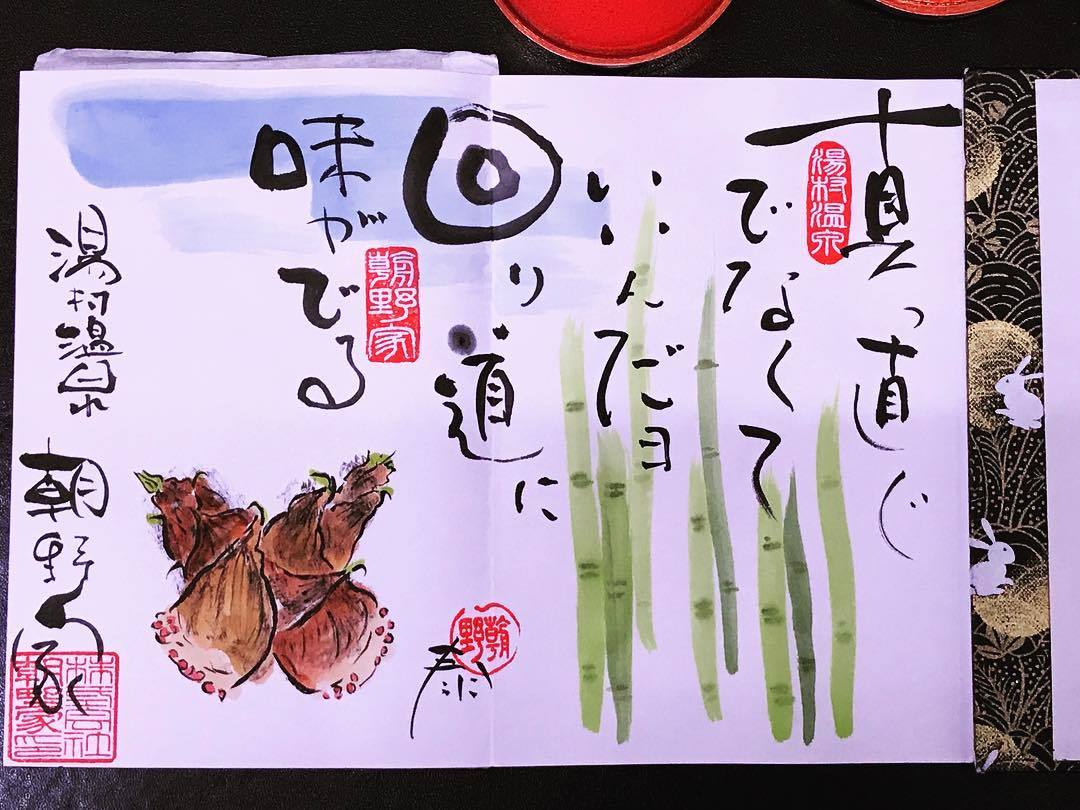 真っ直ぐ
でなくて
いいんだヨ
回り道に
味がでる
湯村温泉
朝野家
湯村温泉
朝野家
朝野
株式会社
朝野家